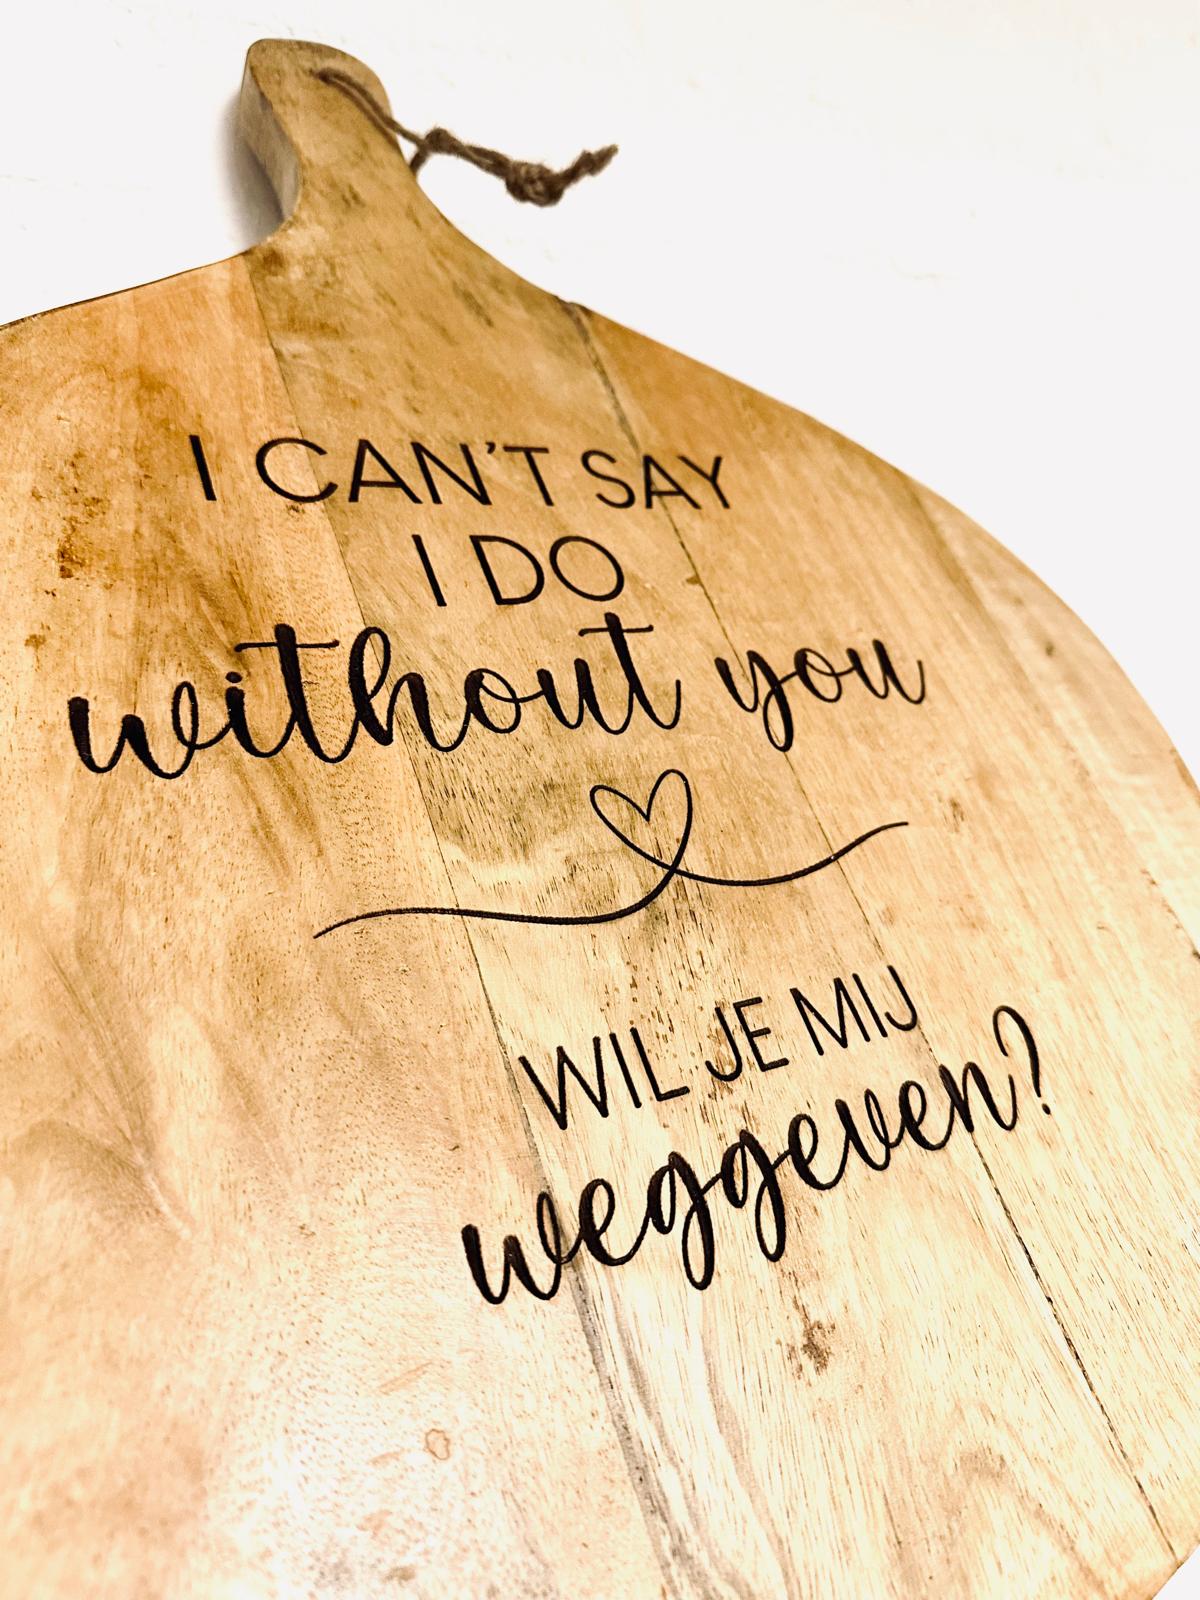 I CAN'T SAY
I DO
without you
WIL JE MIJ
weggeven?